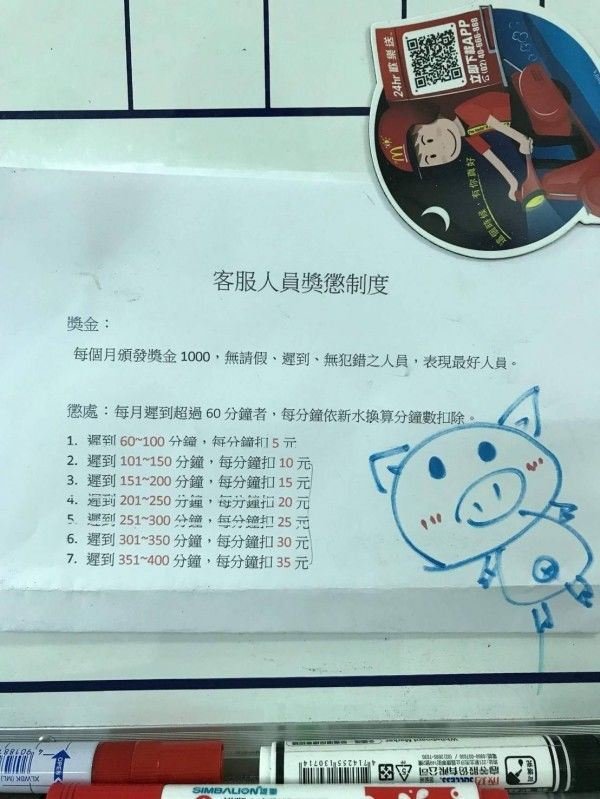 24hr 歡樂送
立即下載APP
(02) 40-666-888
這個時候，有你真好
客服人員獎懲制度
獎金：
每個月頒發獎金 1000，無請假、遲到、無犯錯之人員，表現最好人員。
懲處：每月遲到超過 60 分鐘者，每分鐘依新水換算分鐘數扣除。
1. 遲到 60~100 分鐘，每分鐘扣 5 元
2. 遲到 101~150 分鐘，每分鐘扣 10 元
3. 遲到 151~200 分鐘，每分鐘扣 15 元
4. 遲到 201~250 分鐘，每分鐘扣 20 元
5. 遲到 251~300 分鐘，每分鐘扣 25 元
6. 遲到 301~350 分鐘，每分鐘扣 30 元
7. 遲到 351~400 分鐘，每分鐘扣 35 元
Whiteboard Marker
SUCCESS
4714255130714
SIMBALION